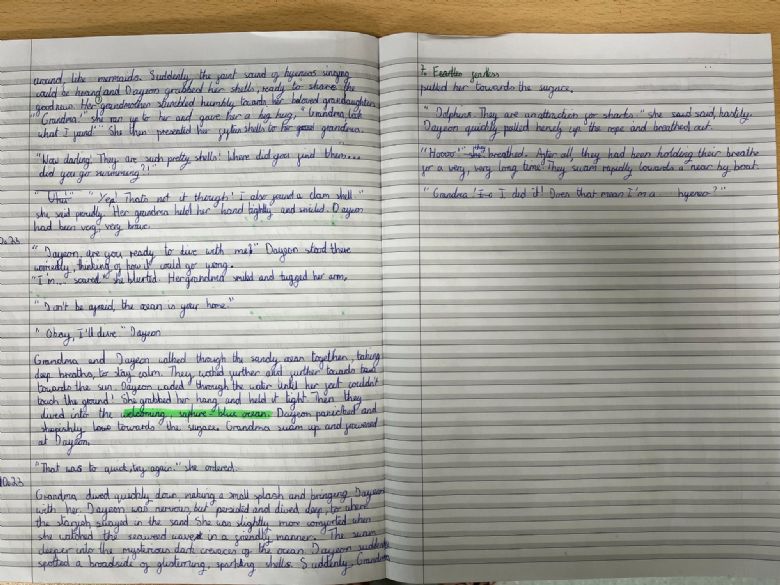 around, like mermaids. Suddenly, the joint sound of hyeneos singing
could be heard and Dayeon grabbed her shells, ready to share the
good news. Her grandmother stumbled humbly towards her beloved grandaughter.
"Grandma!" she ran up to her and gave her a big hug, "Grandma, look
what I found" She then presented her shells to her grandma.
"Wow darling! They are such pretty shells! Where did you find them...
did you go swimming?!"
"Yep! Thats not it though! I also found a clam shell."
she said proudly. Her grandma held her hand tightly and smiled. Dayeon
had been very, very brave.
0.23
"Dayeon, are you ready to dive with me?" Dayeon stood there
worriedly, thinking of how it could go wrong.
"I'm... scared" she blurted. Her grandma smiled and tugged her arm,
"Don't be afraid, the ocean is your home."
"Okay, I'll dive." Dayeon
Grandma and Dayeon walked through the sandy ocean together, taking
deep breaths, to stay calm. They further and further towards
towards the sun. Dayeon waded through the water until her feet couldn't
touch the ground! She grabbed her hand and held it tight. Then they
dived into the welcoming, saphire-blue ocean. Dayeon panicked and
towards the surface. Grandma swam up and frowned
at Dayeon.
"That was to quick, try again." she ordered.
10.23
Grandma dived quickly down, making a small splash and bringing Dayeon
with her. Dayeon was nervous but persisted and dived deep, to where
the starfish stayed in the sand. She was slightly more comforted when
she watched the seaweed waved in a friendly manner. The swam
deeper into the mysterious dark crevaces of the ocean. Dayeon suddenly
spotted a broadside of glistening, sparkling shells. Suddenly, Grandma
7. Fearless fearless
pulled her towards the surface.
"Dolphins. They are an attraction for sharks." she said said, hastily.
Dayeon quickly pulled herself up the rope and breathed out.
"Hoooo" they breathed. After all, they had been holding their breathe
for a very, very long time. They swam rapidly towards a near by boat.
"Grandma! I did it! Does that mean I'm a hyeneo?"